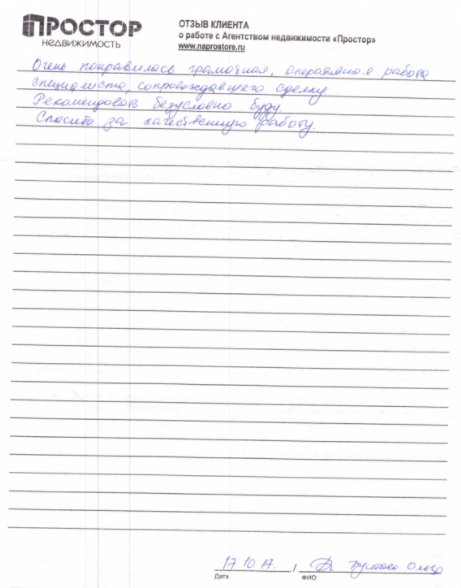 ПРОСТОР
НЕДВИЖИМОСТЬ
ОТЗЫВ КЛИЕНТА
о работе с Агентством недвижимости «Простор»
www.naprostore.ru
Очень понравилась грамотная, оперативная работа
специалиста, сопровождавшего сделку
Рекомендовать безусловно буду
Спасибо за качественную работу.
17.10.17. / Ольга
Дата ФИО